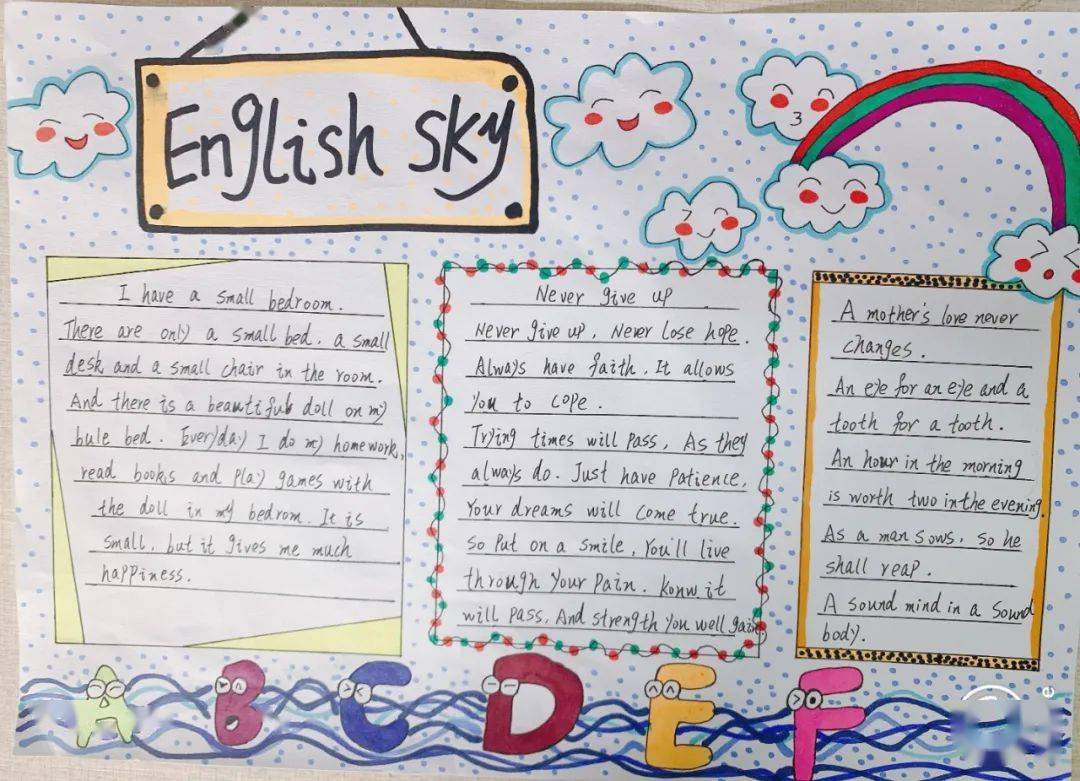 English Sky
I have a small bedroom.
There are only a small bed. a small
desk and a small chair in the room.
And there is a beautiful doll on my
bule bed. Everyday I do my homework,
read books and play games with
the doll in my bedrom. It is
small, but it gives me much
happiness.
Never give up
Never give up, Never Lose hope.
Always have faith, It allows
You to cope.
Trying times will pass, As they
always do. Just have Patience,
Your dreams will come true.
So Put on a smile, You'll live
through Your Pain. konw it
will pass, And strength You well gain.
A mother's love never
changes.
An eye for an eye and a
tooth for a tooth.
An hour in the morning
is worth two in the evening.
As a man sows, so he
shall reap.
A sound mind in a sound
body.
A B C D E F